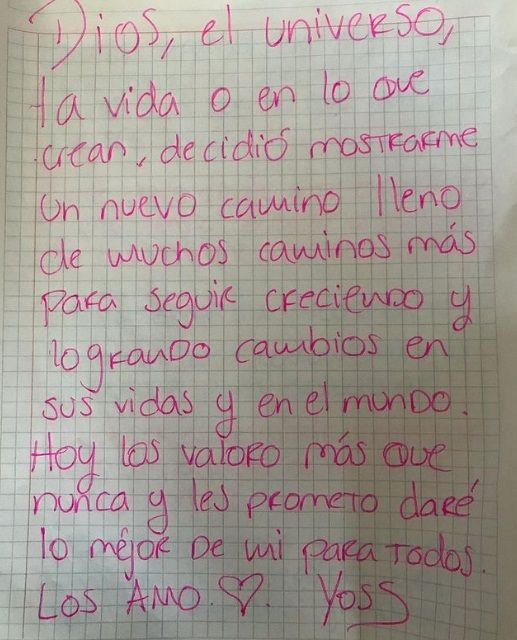 Dios, el universo,
la vida o en lo que
crean, decidió mostrarme
un nuevo camino lleno
de muchos caminos más
para seguir creciendo y
logrando cambios en
sus vidas y en el mundo.
Hoy los valoro más que
nunca y les prometo daré
lo mejor de mi para todos.
Los AMO. ♡. Yoss